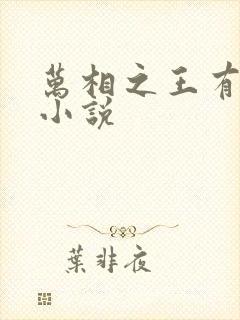 萬相之王有
小說
葉非夜